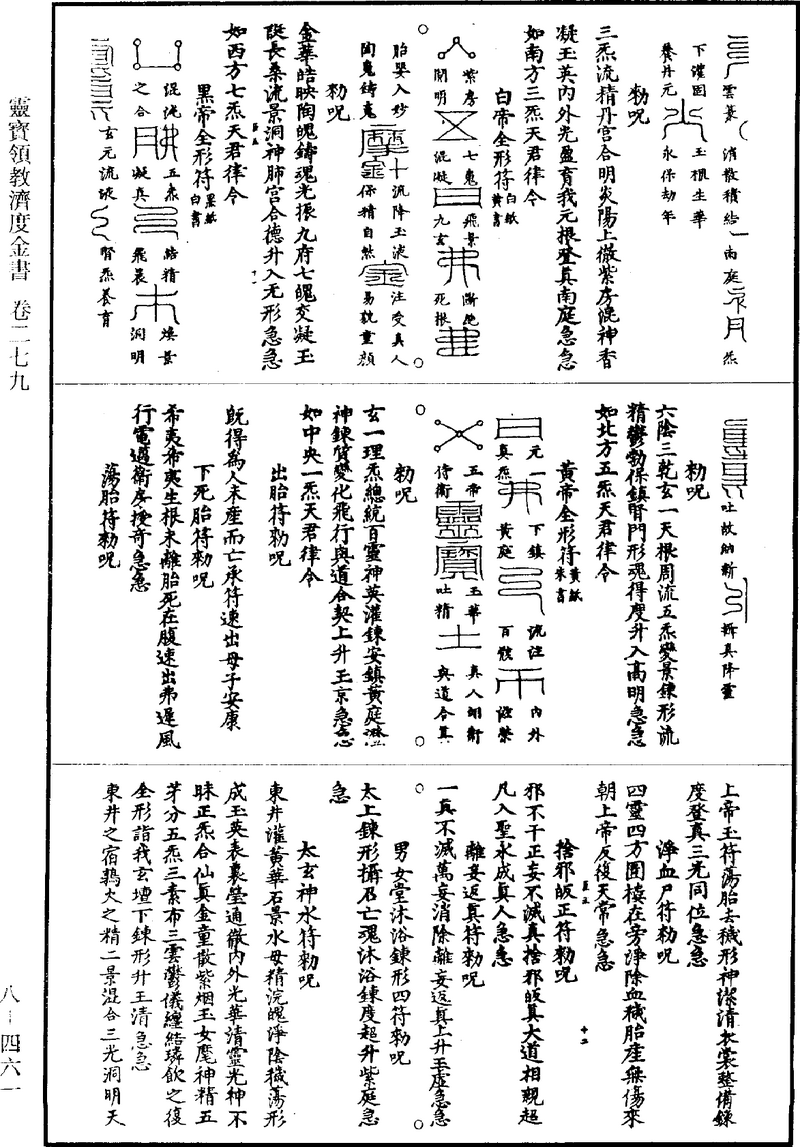 靈寶領教濟度金書 卷二七九
八－四六一
雲篆
下灌固
養丹元
消散積結
玉根生華
永保劫年
南庭
炁
勑呪
三炁流精丹宫合明炎陽上徹紫房混神香
凝玉英内外光盈育我元根登真南庭急急
如南方三炁天君律令
白帝全形符白紙黄書
紫房
開明
七䰟
混凝
飛景
九玄
漸絶
死根
胎嬰入妙
陶䰟鑄䰟
流降玉液
保精自然
注受真人
易貌童顔
勑呪
金華皓映陶魄鑄䰟光振九府七魄交凝玉
從長桑流景洞神肺宫合德升入无形急急
如西方七炁天君律令
黑帝全形符黑紙白書
混沌
之合
五炁
凝真
結精
飛晨
煥景
洞明
玄元流液
腎炁養育
吐故納新
輧真降靈
勑呪
六陰三乾玄一天根周流五炁變景鍊形流
精鬱勃保鎮腎門形魂得度升入高明急急
如北方五炁天君律令
黄帝全形符黄紙朱書
元一
真炁
下鎮
黄庭
流注
百骸
内外
五帝
侍衛
靈寶
玉華
吐精
真人翊衛
與道合真
勑呪
玄一理炁總統百靈神英灌鍊安鎮黄庭
神鍊質變化飛行與道合契上升玉京急急
如中央一炁天君律令
出胎符勑呪
既得為人未産而亡承符速出母子安康
下死胎符勑呪
希夷希夷生根未離胎死在腹速出弗遲風
行電邁衛房授奇急急
蕩胎符勑呪
上帝玉符蕩胎去穢形神潔清衣裳整備鍊
度登真三光同位急急
淨血尸符勑呪
四靈四方圍穢在旁淨除血穢胎産無傷來
朝上帝反復天常急急
捨邪皈正符勑呪
邪不干正妄不滅真捨邪皈真大道相親超
凡入聖永成真人急急
離妄返真符勑呪
一真不滅萬妄消除離妄返真上升玉虛急急
男女堂沐浴鍊形四符勑呪
太上鍊形攝召亡魂沐浴鍊度超升紫庭急
急
太玄神水符勑呪
東井灌黄華石景水母精浣魄淨陰穢蕩形
成玉英表裏瑩通徹内外光華清靈光神不
昧正炁合仙真金童散紫烟玉女麾神精五
芽分五炁三素布三雲鬱儀纏結璘飲之復
全形詣我玄壇下鍊形升玉清急急
東井之宿鶉火之精二景混合三光洞明天